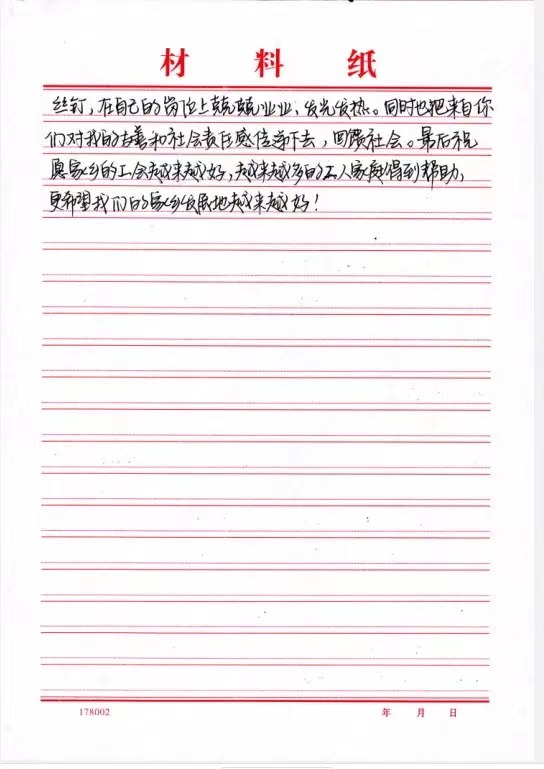 材 料 纸
丝钉，在自己的岗位上兢兢业业、发光发热。同时也把来自你
们对我的友善和社会责任感传递下去，回馈社会。最后祝
愿家乡的工会越来越好，越来越多的工人家庭得到帮助，
更希望我们的家乡发展地越来越好！
178002
年 月 日